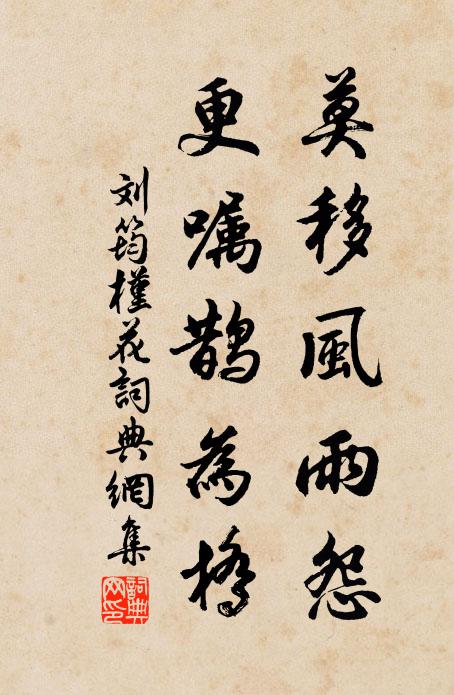 莫移風雨怨
更嘱鹊為橋
刘筠槿花詞典網集
詞典網印